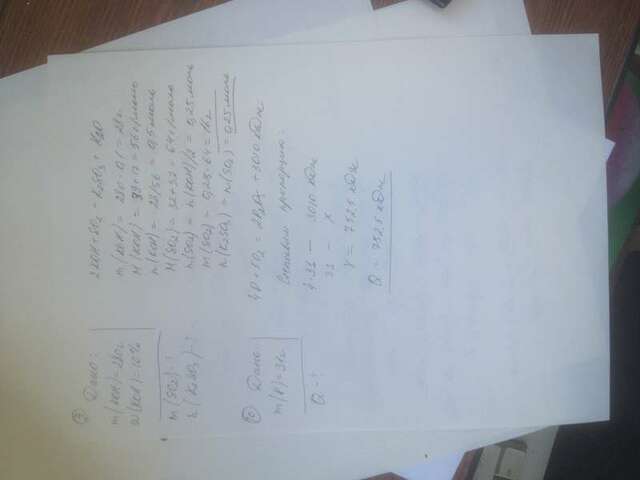 Дано:
m(KOH)=280г
w(KOH)=10%
m(SO2)-?
n(K2SO3)-?
2KOH+SO2=K2SO3+H2O
m(KOH)=280·0,1=28г
M(KOH)=39+17=56г/моль
n(KOH)=28/56=0,5моль
M(SO2)=32+32=64г/моль
n(SO2)=n(KOH)/2=0,25моль
m(SO2)=0,25·64=16г
n(K2SO3)=n(SO2)=0,25моль
Дано
m(P)=31г
Q-?
4P+5O2=2P2O5+3010кДж
Составим пропорцию:
4·31 — 3010 кДж
31 — x
x=752,5 кДж
Q=752,5 кДж